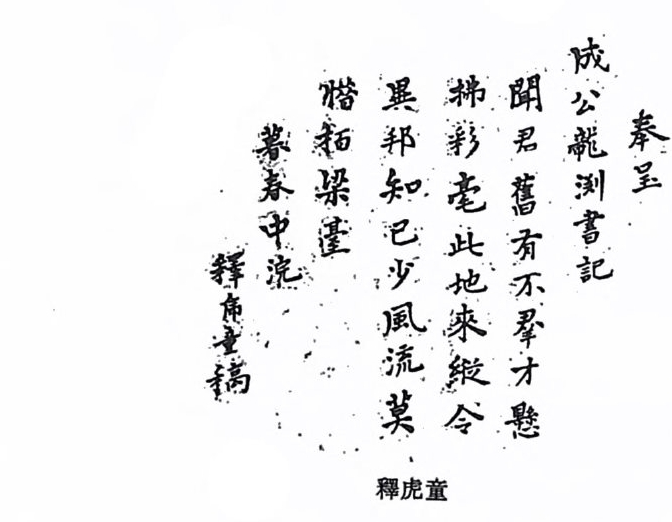 奉呈
成公龍渕書記
聞君舊有不羣才懸
拂彩毫此地來縱令
異邦知己少風流莫
惜栢梁臺
暮春中浣
釋虎童稿
釋虎童